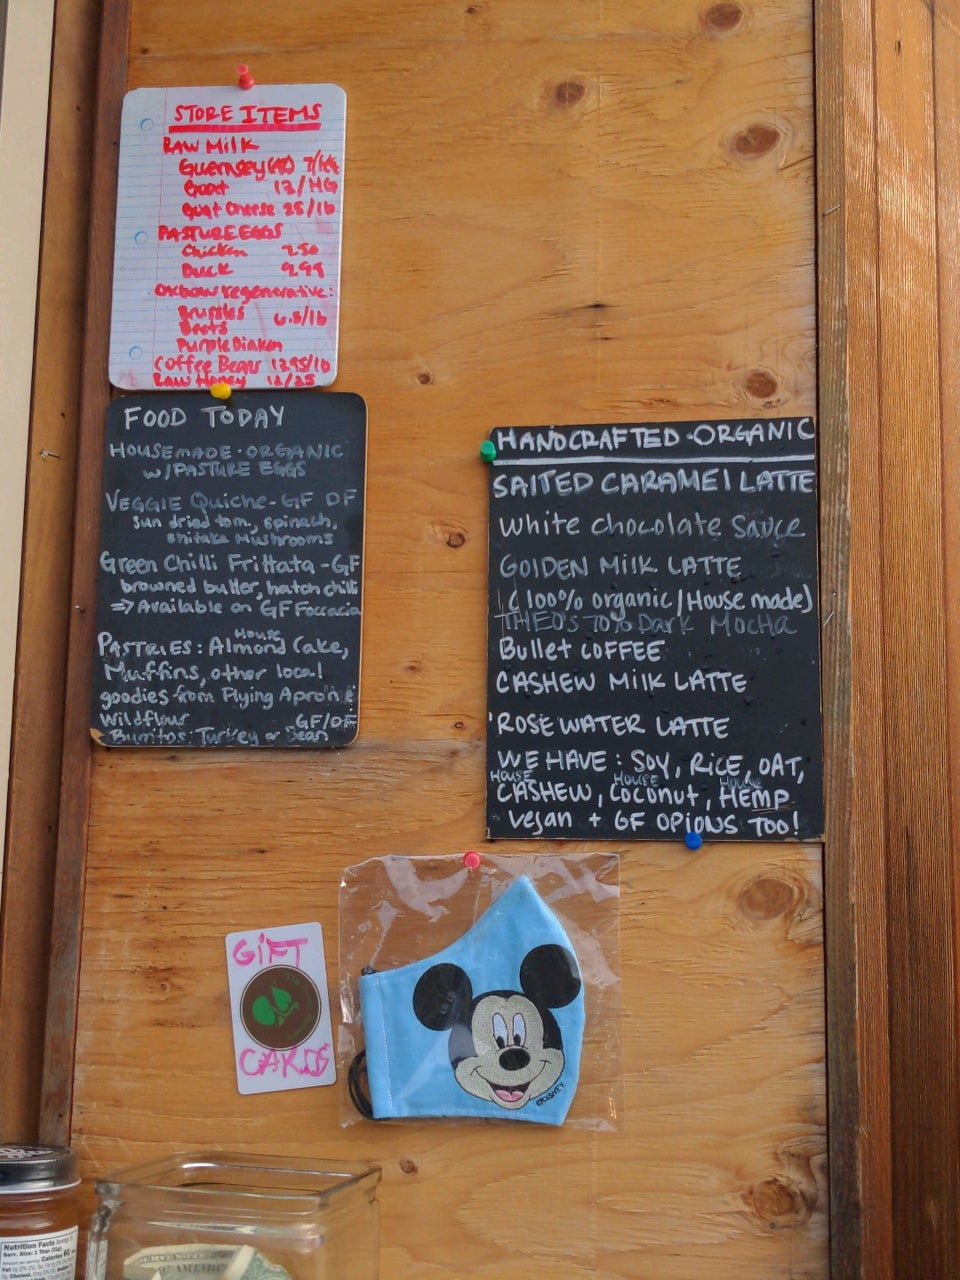 STORE ITEMS
RAW MILK
Guernsey(A2) 7/HG
Goat 12/HG
Goat Cheese 25/lb
PASTURE EGGS
Chicken 750
Duck 999
Oxbow regenerative:
Beets 6.5/lb
Purple Diaken
Coffee Beans 1295/lb
RAW Honey 12/25
FOOD TODAY
HOUSEMADE·ORGANIC
W/PASTURE EGGS
VEGGIE Quiche-GF DF
sun dried tom, spinach,
shitake Mushrooms
Green Chilli Frittata-GF
browned butter, hatch chilli
=> Available on GF Foccacia
House
PASTRIES: Almond Cake,
Muffins, other local
goodies from Flying Apron &
Wildflour GF/DF
Burritos: Turkey or Bean
HANDCRAFTED·ORGANIC
SALTED CARAMEL LATTE
White Chocolate Sauce
GOLDEN MILK LATTE
(100% organic/House made)
THEO'S 70% Dark MOCHA
Bullet COFFEE
CASHEW MILK LATTE
ROSE WATER LATTE
WE HAVE: SOY, RICE, OAT,
HOUSE HOUSE HOUSE
CASHEW, COCONUT, HEMP
Vegan + GF OPIONS TOO!
GIFT
CARDS
©DISNEY
Nutrition Facts
Serv. Size: 1 Tbsp (21g)
Calories 60